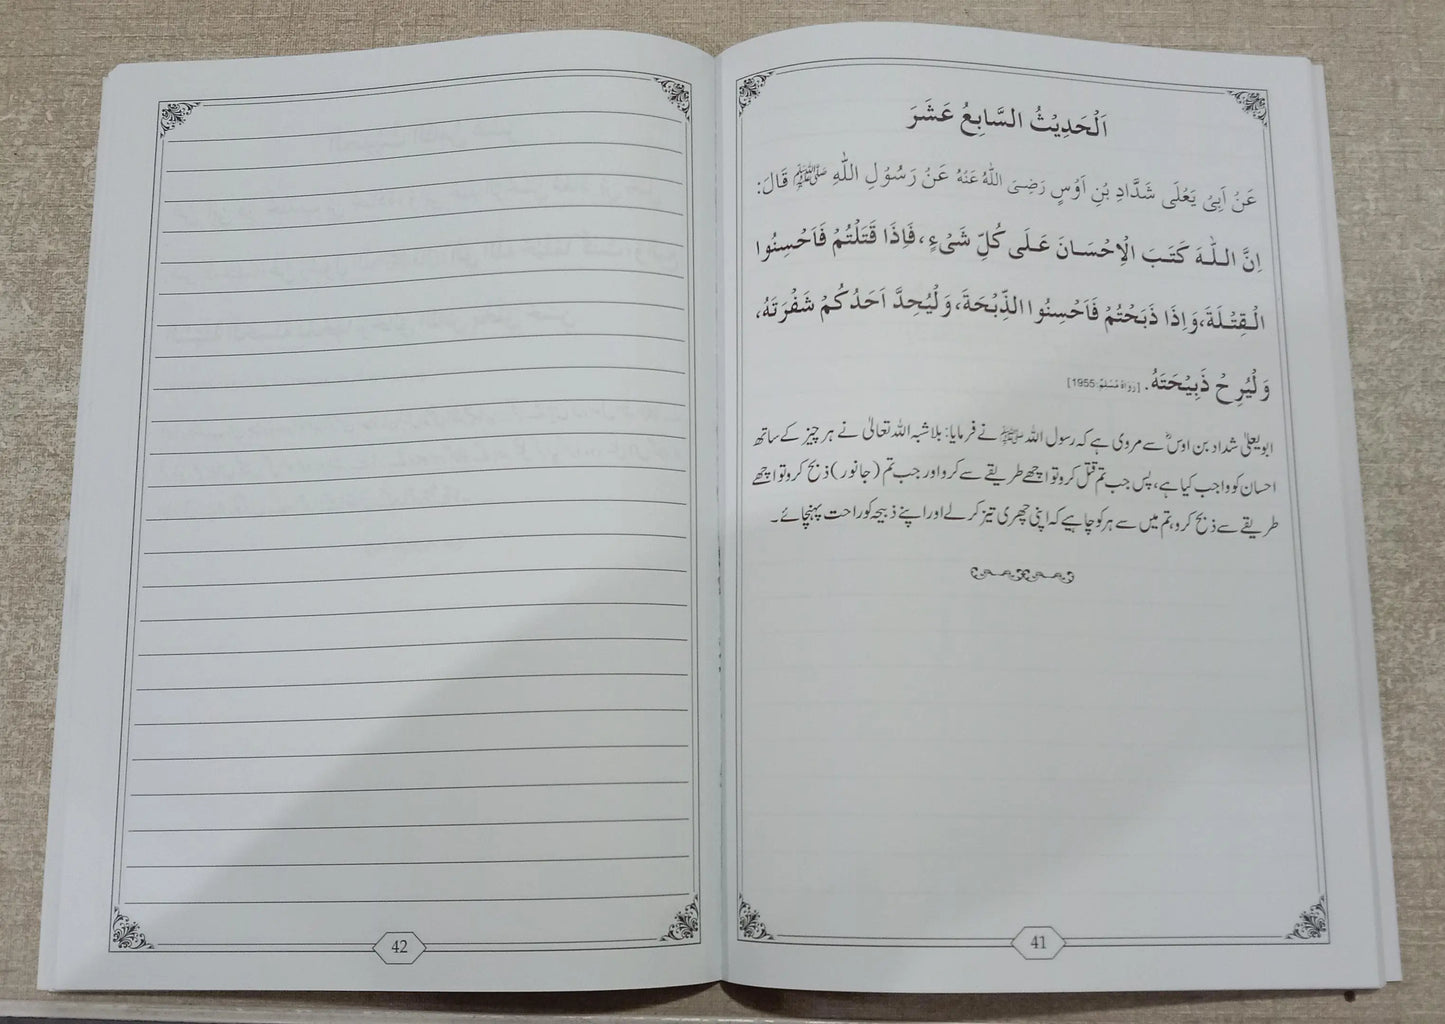 اَلْحَدِيْثُ السَّابِعُ عَشَرَ
عَنْ اَبِيْ يَعْلَى شَدَّادِ بْنِ اَوْسٍ رَضِىَ اللّٰهُ عَنْهُ عَنْ رَسُوْلِ اللّٰهِ ﷺ قَالَ:
اِنَّ اللّٰهَ كَتَبَ الْاِحْسَانَ عَلَى كُلِّ شَىْءٍ، فَاِذَا قَتَلْتُمْ فَاَحْسِنُوا
الْقِتْلَةَ، وَاِذَا ذَبَحْتُمْ فَاَحْسِنُوا الذِّبْحَةَ، وَلْيُحِدَّ اَحَدُكُمْ شَفْرَتَهُ،
وَلْيُرِحْ ذَبِيْحَتَهُ. [رَوَاهُ مُسْلِمٌ:1955]
ابویعلیٰ شداد بن اوسؓ سے مروی ہے کہ رسول اللہ ﷺ نے فرمایا: بلاشبہ اللہ تعالیٰ نے ہر چیز کے ساتھ
احسان کو واجب کیا ہے، پس جب تم قتل کرو تو اچھے طریقے سے کرو اور جب تم (جانور) ذبح کرو تو اچھے
طریقے سے ذبح کرو، تم میں سے ہر کو چاہیے کہ اپنی چھری تیز کر لے اور اپنے ذبیحہ کو راحت پہنچائے۔
41
42